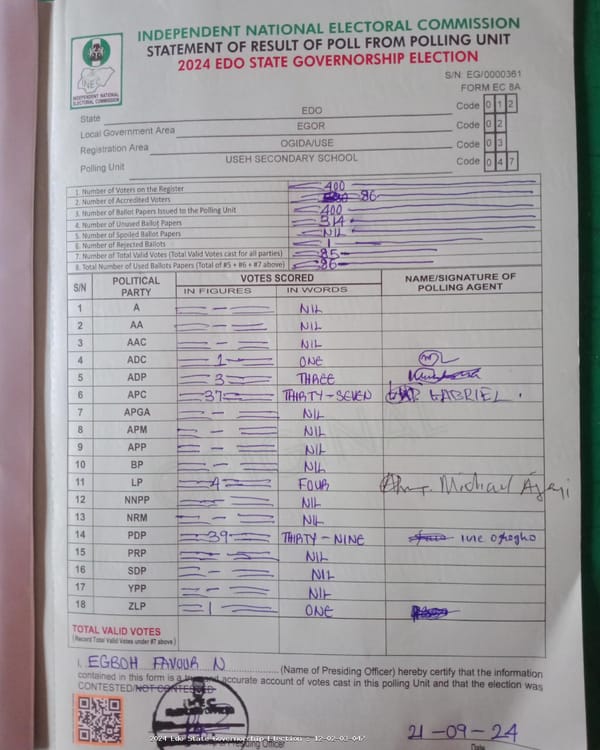 INDEPENDENT NATIONAL ELECTORAL COMMISSION
STATEMENT OF RESULT OF POLL FROM POLLING UNIT
2024 EDO STATE GOVERNORSHIP ELECTION
INEC
INDEPENDENT NATIONAL ELECTORAL COMMISSION
S/N: EG/0000361
FORM EC 8A
State EDO Code 0 1 2
Local Government Area EGOR Code 0 2
Registration Area OGIDA/USE Code 0 3
Polling Unit USEH SECONDARY SCHOOL Code 0 4 7
1. Number of Voters on the Register 400
2. Number of Accredited Voters 86
3. Number of Ballot Papers Issued to the Polling Unit 400
4. Number of Unused Ballot Papers 314
5. Number of Spoiled Ballot Papers NIL
6. Number of Rejected Ballots 1
7. Number of Total Valid Votes (Total Valid Votes cast for all parties) 85
8. Total Number of Used Ballots Papers (Total of #5 + #6 + #7 above) 86
S/N POLITICAL PARTY VOTES SCORED NAME/SIGNATURE OF POLLING AGENT
IN FIGURES IN WORDS
1 A - NIL
2 AA - NIL
3 AAC - NIL
4 ADC 1 ONE
5 ADP 3 THREE
6 APC 37 THIRTY-SEVEN GABRIEL.
7 APGA - NIL
8 APM - NIL
9 APP - NIL
10 BP - NIL
11 LP 4 FOUR Michael Ajayi
12 NNPP - NIL
13 NRM - NIL
14 PDP 39 THIRTY-NINE
15 PRP - NIL
16 SDP - NIL
17 YPP - NIL
18 ZLP 1 ONE
TOTAL VALID VOTES
(Record Total Valid Votes under #7 above)
I, EGBOH FAVOUR N (Name of Presiding Officer) hereby certify that the information
contained in this form is a true and accurate account of votes cast in this polling Unit and that the election was
CONTESTED/NOT CONTESTED
2024 Edo State Governorship Election - 12-02-03-047
Presiding Officer
21-09-24
Date